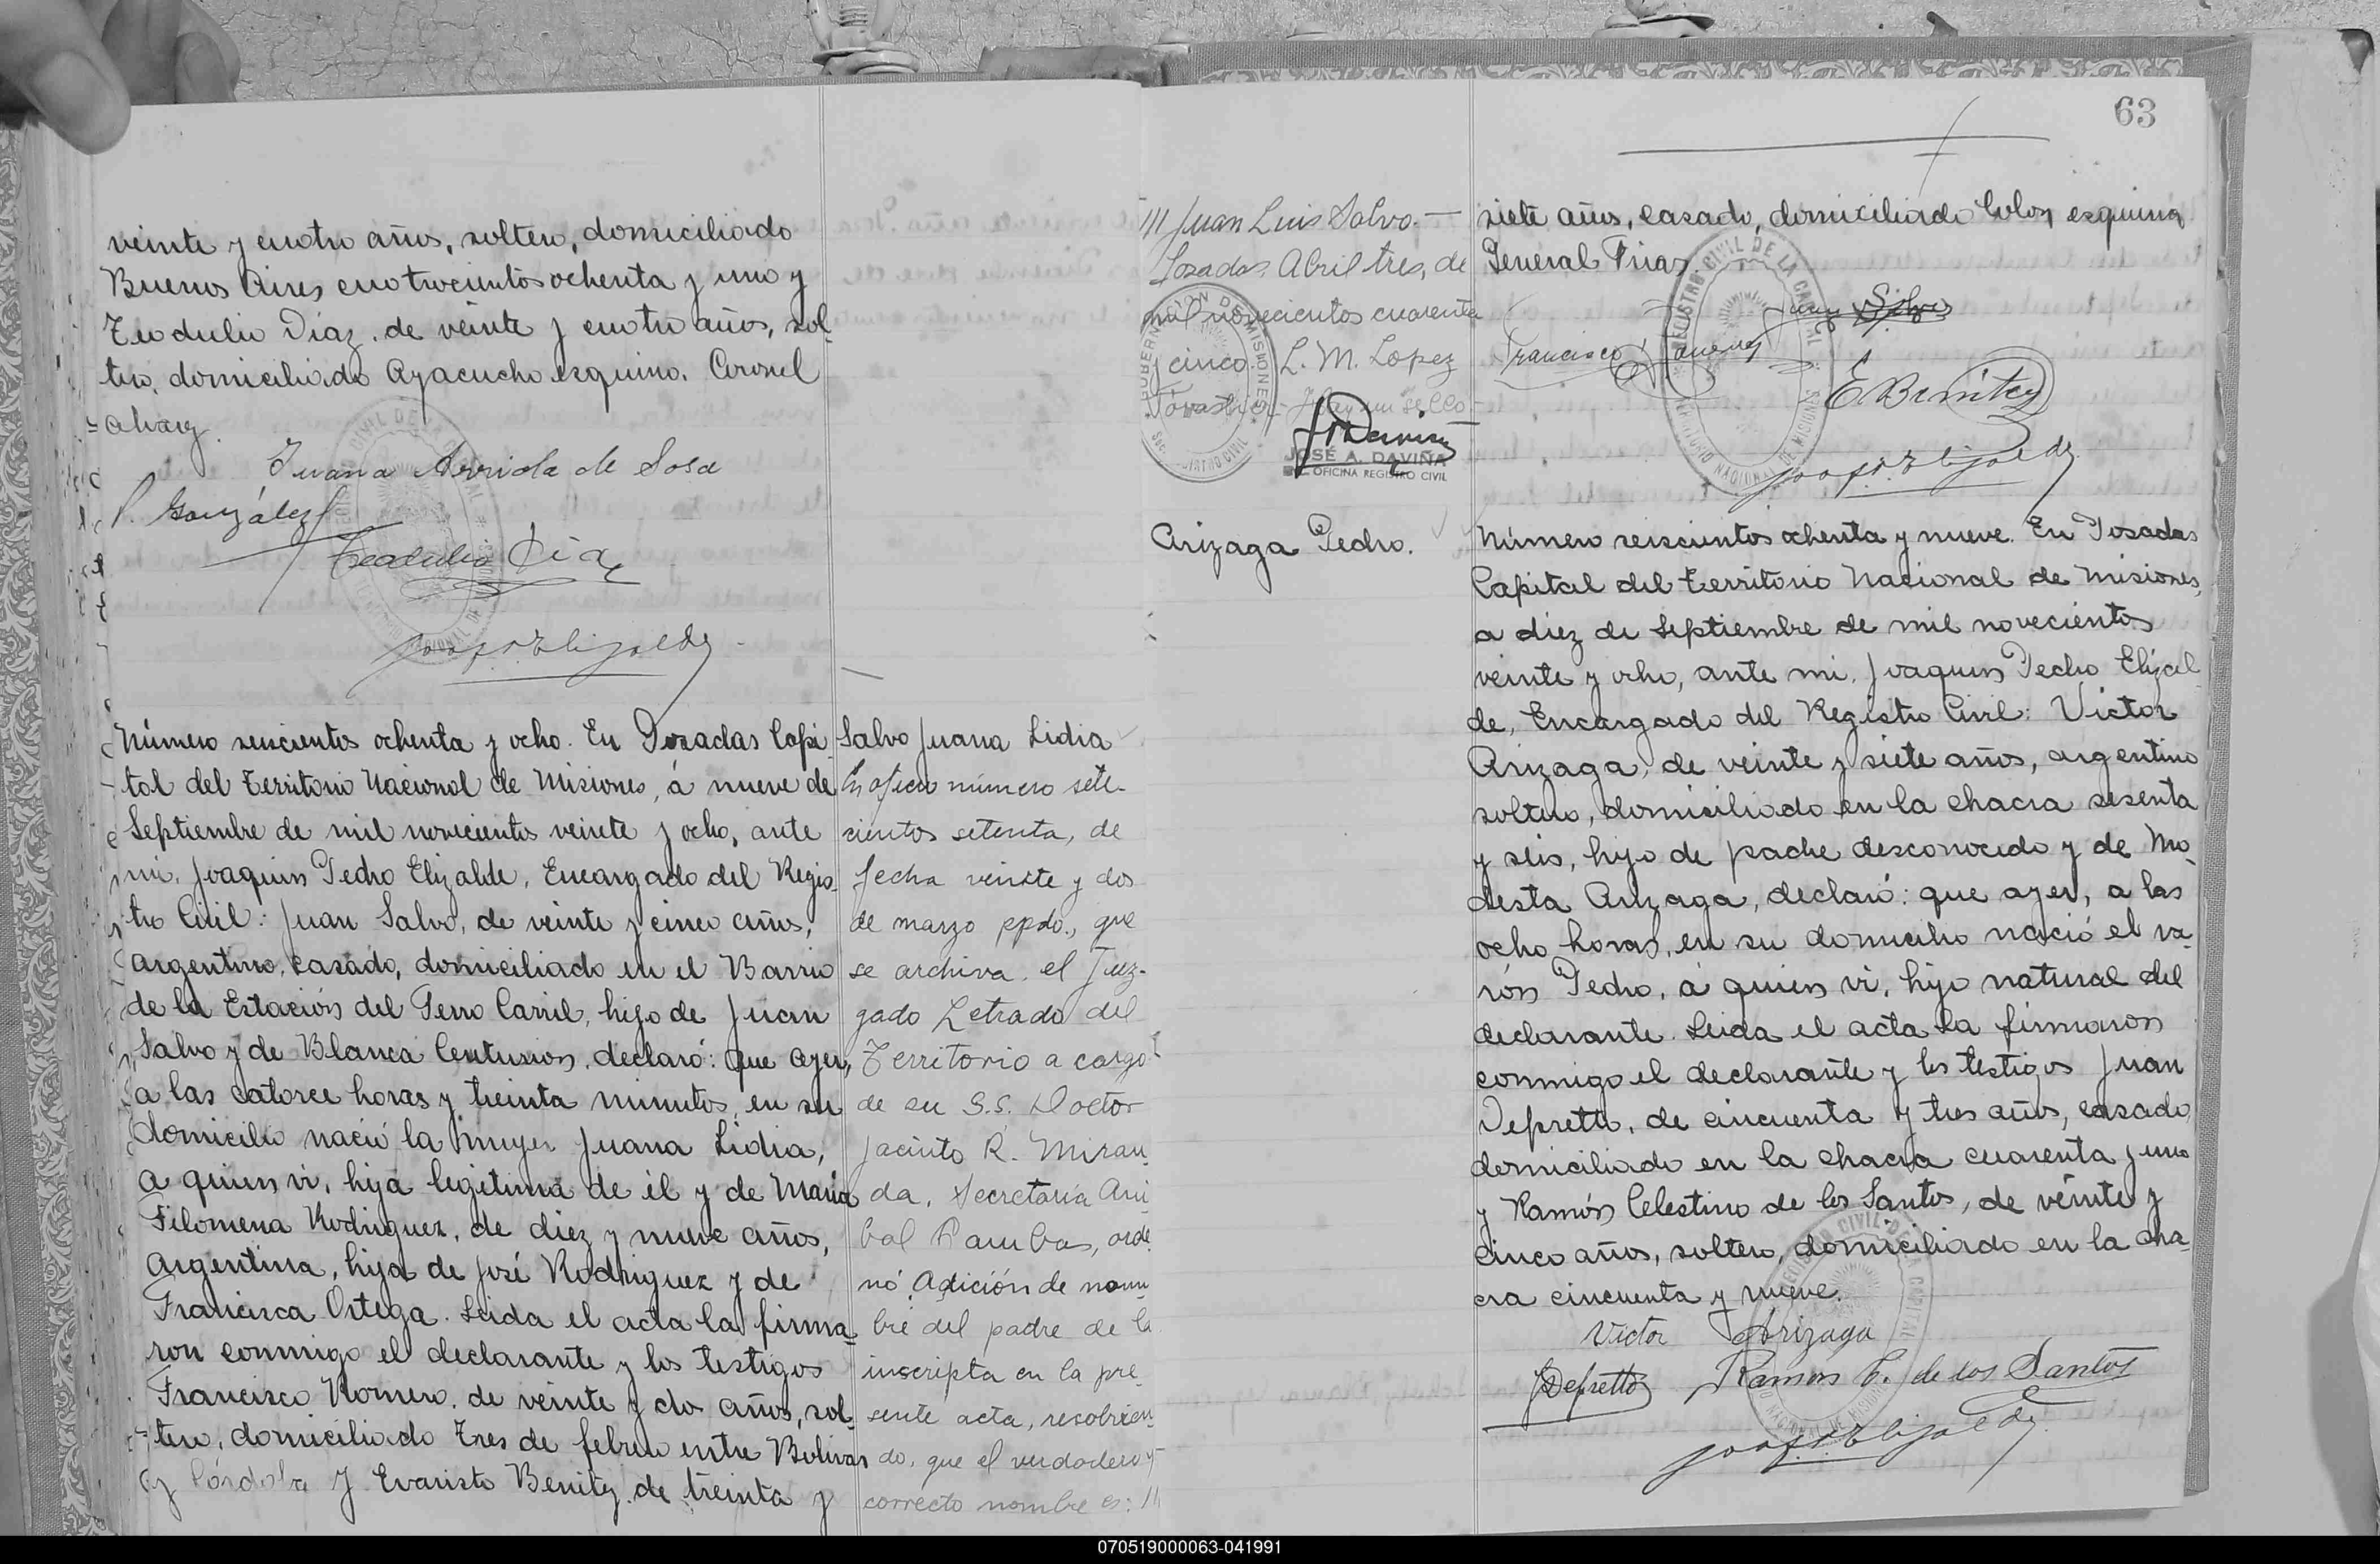 veinte y cuatro años, soltero, domiciliado
Buenos Aires cuatrocientos ochenta y uno y
Teodulio Díaz, de veinte y cuatro años, sol-
tero, domiciliado Ayacucho esquina Coronel
Alvarez.
Juana Arriola de Sosa
P. González
Teodulio Díaz
Número seiscientos ochenta y ocho. En Posadas Capi-
tal del Territorio Nacional de Misiones, á nueve de
Septiembre de mil novecientos veinte y ocho, ante
mi, Joaquin Pedro Elizalde, Encargado del Regis-
tro Civil: Juan Salvo, de veinte y cinco años,
argentino, casado, domiciliado en el Barrio
de la Estación del Ferro Carril, hijo de Juan
Salvo y de Blanca Centurion, declaró: que ayer,
a las catorce horas y treinta minutos, en su
domicilio nació la mujer Juana Lidia,
a quien vi, hija legitima de él y de María
Filomena Rodriguez, de diez y nueve años,
argentina, hija de José Rodriguez y de
Francisca Ortega. Leida el acta la firma-
ron conmigo el declarante y los testigos
Francisco Romero, de veinte y dos años, sol-
tero, domiciliado Tres de febrero entre Bolivar
y Córdoba y Evaristo Benitez, de treinta y
Salvo Juana Lidia
En oficio número sete-
cientos setenta, de
fecha veinte y dos
de marzo ppdo., que
se archiva, el Juz-
gado Letrado del
Territorio a cargo
de su S.S. Doctor
Jacinto R. Miran-
da, Secretaría Aní
bal Bambas, orde
nó Adición de nom
bre del padre de la
inscripta en la pre-
sente acta, resolvien-
do, que el verdadero y
correcto nombre es: //
63
/// Juan Luis Salvo.—
Posadas, Abril tres, de
mil novecientos cuarenta
y cinco. L. M. Lopez
Hay un sello
GOBERNACION DE MISIONES
JOSÉ A. DAVIÑA
OFICINA REGISTRO CIVIL
siete años, casado, domiciliado Colon esquina
General Frias
REGISTRO CIVIL DE LA CAPITAL
Juan Salvo
Francisco
E Benitez
Arizaga Pedro.
Número seiscientos ochenta y nueve. En Posadas
Capital del Territorio Nacional de Misiones,
a diez de Septiembre de mil novecientos
veinte y ocho, ante mi, Joaquin Pedro Elizal-
de, Encargado del Registro Civil: Victor
Arizaga, de veinte y siete años, argentino
soltero, domiciliado en la chacra sesenta
y seis, hijo de padre desconocido y de Mo-
desta Arizaga, declaró: que ayer, a las
ocho horas, en su domicilio nació el va-
rón Pedro, á quien vi, hijo natural del
declarante. Leida el acta la firmaron
conmigo el declarante y los testigos Juan
Depretto, de cincuenta y tres años, casado,
domiciliado en la chacra cuarenta y uno
y Ramón Celestino de los Santos, de veinte y
cinco años, soltero, domiciliado en la cha-
cra cincuenta y nueve.
Victor Arizaga
JDepretto Ramon C. de los Santos
070519000063-041991